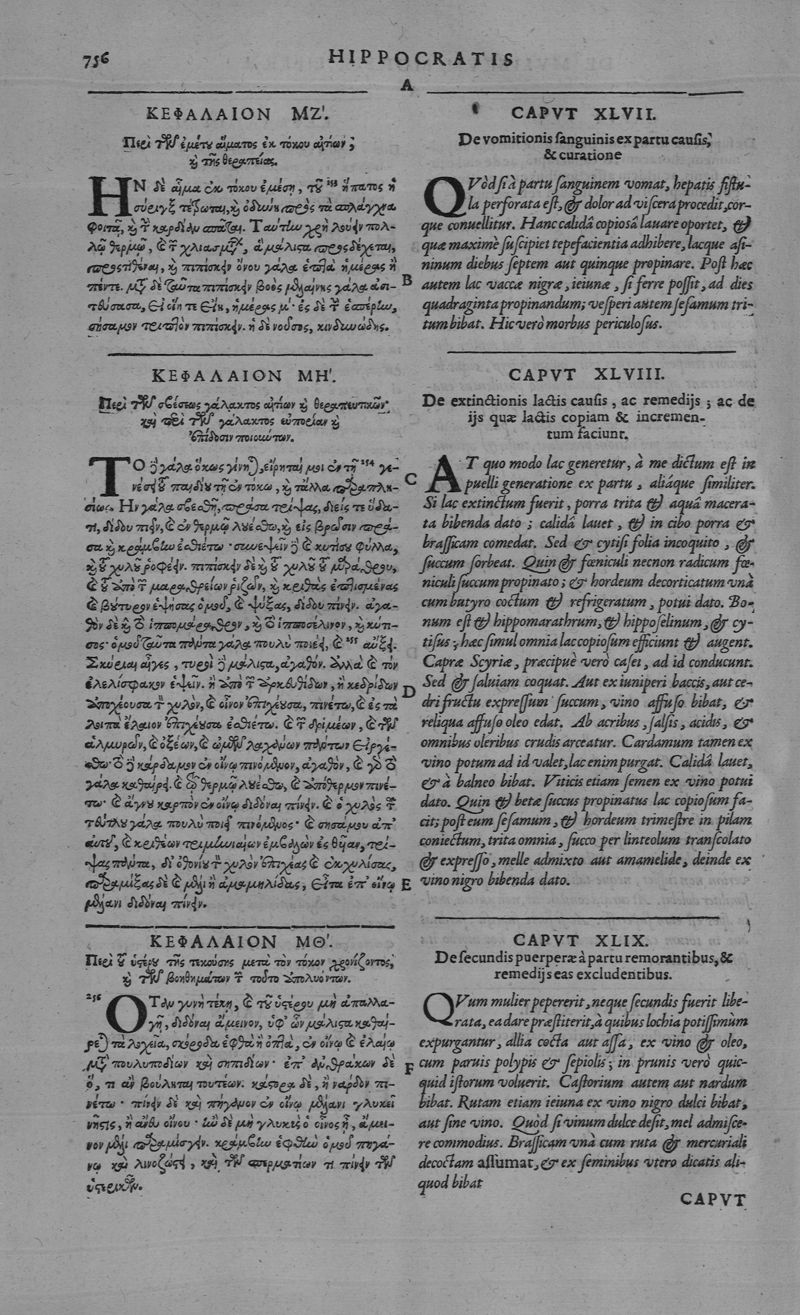 756
HIPPOCRATIS
ΚΕΦΑΛΑΙΟΝ ΜΖ΄.
Περὶ τῶν ἐμέτου αἵματος ἐκ τόκου αἰτίων,
καὶ τῆς θεραπείας.
ΗΝ δὲ αἷμα ἐκ τόκου ἐμέσῃ, τοῦ ἥπατος ἡ
σύριγξ τέτρωται, καὶ ὀδύνη πρὸς τὰ σπλάγχνα
φοιτᾷ, καὶ τὴν καρδίην σπᾶται. Ταύτην χρὴ λούειν πολ-
λῷ θερμῷ, καὶ τῶν χλιασμάτων, ἃ μάλιστα προσδέχεται,
προστιθέναι, καὶ πιπίσκειν ὄνου γάλα ἑπτὰ ἡμέρας ἢ
πέντε. μετὰ δὲ ταῦτα πιπίσκειν βοὸς μελαίνης γάλα ἀσι-
τεύσασα, εἰ οἵη τε εἴη, ἡμέρας μ΄· ἐς δὲ τὴν ἑσπέρην,
σήσαμον τριπτὸν πιπίσκειν. ἡ δὲ νοῦσος, κινδυνώδης.
ΚΕΦΑΛΑΙΟΝ ΜΗ΄.
Περὶ τῶν σβέσεως γάλακτος αἰτίων καὶ θεραπευτικῶν·
καὶ περὶ τῶν γάλακτος εὐπορίαν καὶ
ἐπίδοσιν ποιούντων.
ΤΟ δὲ γάλα ὅκως γίνηται, εἴρηταί μοι ἐν τῇ 254 γε-
νέσει τοῦ παιδίου τῇ ἐν τόκῳ, καὶ τἄλλα παραπλη-
σίως. Ην γάλα σβεσθῇ, πράσα τρίψας, διεὶς τε ὕδα-
τι, δίδου πιεῖν, καὶ ἐν θερμῷ λουέσθω, καὶ εἰς βρῶσιν πρά-
σα καὶ κράμβην ἐσθιέτω· συνεψεῖν δὲ καὶ κυτίσου φύλλα,
καὶ τοῦ χυλοῦ ῥοφέειν. πιπίσκειν δὲ καὶ τοῦ χυλοῦ τοῦ μαράθρου,
καὶ τοῦ ἀπὸ τῶν μαραθρείων ῥιζῶν, καὶ κριθὰς ἐπτισμένας
καὶ βούτυρον ἑψήσας ὁμοῦ, καὶ ψύξας, δίδου πίνειν. ἀγα-
θὸν δὲ καὶ τὸ ἱππομάραθρον, καὶ τὸ ἱπποσέλινον, καὶ κύτι-
σος· ὁμοῦ ταῦτα πάντα γάλα πουλὺ ποιεῖ, καὶ 255 αὔξει.
Σκύριαι αἶγες, τυροὶ δὲ μάλιστα, ἀγαθόν. ἀλλὰ καὶ τὸν
ἐλελίσφακον ἑψεῖν. ἢ ἀπὸ τῶν ἀρκευθίδων, ἢ κεδρίδων
ἀποχέουσα τὸν χυλὸν, καὶ οἶνον ἐπιχέουσα, πινέτω, καὶ ἐς τὰ
λοιπὰ ἔλαιον ἐπιχέουσα ἐσθιέτω. καὶ τῶν δριμέων, καὶ τῶν
ἁλμυρῶν, καὶ ὀξέων, καὶ ὠμῶν λαχάνων πάντων εἰργέ-
σθω· τὸ δὲ κάρδαμον ἐν οἴνῳ πινόμενον, ἀγαθὸν, καὶ γὰρ τὸ
γάλα καθαίρει. καὶ τῷ θερμῷ λουέσθω, καὶ ἀπόθερμον πινέ-
τω· καὶ ἄγνου καρπὸν ἐν οἴνῳ διδόναι πίνειν. καὶ ὁ χυλὸς τῶν
τεύτλων γάλα πουλὺ ποιεῖ πινόμενος· καὶ σησάμου ἀπ᾽
αὐτοῦ, καὶ κριθέων τριμηνιαίων ἐμβαλὼν ἐς θυῖαν, τρί-
ψας πάντα, δι᾽ ὀθονίου τὸν χυλὸν ἐπιχέας καὶ ἐκχυλίσας,
παραμίξας δὲ καὶ μέλι ἢ ἁμαμηλίδας, εἶτα ἐπ᾽ οἴνῳ
μέλανι διδόναι πίνειν.
ΚΕΦΑΛΑΙΟΝ ΜΘ΄.
Περὶ τοῦ ὑστέρου τῆς τεκούσης μετὰ τὸν τόκον χρονίζοντος,
καὶ τῶν βοηθημάτων τῶν τοῦτο ἀπολυόντων.
256 ΟΤαν γυνὴ τέκῃ, καὶ τοῦ ὑστέρου μὴ ἀπαλλα-
γῇ, διδόναι ἄμεινον, ὑφ᾽ ὧν μάλιστα καθαί-
ρεται τὰ λοχεῖα, σκόροδα ἑφθὰ ἢ ὀπτὰ, ἐν οἴνῳ καὶ ἐλαίῳ
μετὰ πουλυποδίων καὶ σηπιδίων· ἐπ᾽ ἀνθράκων δὲ
ὅ, τι ἂν βούληται τουτέων. κάστορα δὲ, ἢ νάρδον πι-
νέτω· πίνειν δὲ καὶ πήγανον ἐν οἴνῳ μέλανι γλυκεῖ
νῆστις, ἢ ἄνευ οἴνου· ἢν δὲ μὴ γλυκὺς ὁ οἶνος ᾖ, ἄμει-
νον μέλι παραμίσγειν. κράμβην ἑφθὴν ὁμοῦ πηγά-
νῳ καὶ λινοζώστῃ, καὶ τῶν σπερμάτων τι πίνειν τῶν
ὑστερικῶν.
A
B
C
D
E
F
CAPVT XLVII.
De vomitionis ſanguinis ex partu cauſis,
& curatione
QVòd ſi à partu ſanguinem vomat, hepatis fiſtu-
la perforata eſt, & dolor ad viſcera procedit, cor-
que conuellitur. Hanc calidâ copioſâ lauare oportet, &
quæ maximè ſuſcipiet tepefacientia adhibere, lacque aſi-
ninum diebus ſeptem aut quinque propinare. Poſt hæc
autem lac vaccæ nigræ, ieiunæ, ſi ferre poſſit, ad dies
quadraginta propinandum; veſperi autem ſeſamum tri-
tum bibat. Hic verò morbus periculoſus.
CAPVT XLVIII.
De extinctionis lactis cauſis, ac remedijs; ac de
ijs quæ lactis copiam & incremen-
tum faciunt.
AT quo modo lac generetur, à me dictum eſt in
puelli generatione ex partu, aliáque ſimiliter.
Si lac extinctum fuerit, porra trita & aquâ macera-
ta bibenda dato; calidâ lauet, & in cibo porra &
braſſicam comedat. Sed & cytiſi folia incoquito, &
ſuccum ſorbeat. Quin & fœniculi necnon radicum fœ-
niculi ſuccum propinato; & hordeum decorticatum vnà
cum butyro coctum & refrigeratum, potui dato. Bo-
num eſt & hippomarathrum, & hippoſelinum, & cy-
tiſus; hæc ſimul omnia lac copioſum efficiunt & augent.
Capræ Scyriæ, præcipuè verò caſei, ad id conducunt.
Sed & ſaluiam coquat. Aut ex iuniperi baccis, aut ce-
dri fructu expreſſum ſuccum, vino affuſo bibat, &
reliqua affuſo oleo edat. Ab acribus, ſalſis, acidis, &
omnibus oleribus crudis arceatur. Cardamum tamen ex
vino potum ad id valet, lac enim purgat. Calidâ lauet,
& à balneo bibat. Viticis etiam ſemen ex vino potui
dato. Quin & betæ ſuccus propinatus lac copioſum fa-
cit; poſt eum ſeſamum, & hordeum trimeſtre in pilam
coniectum, trita omnia, ſucco per linteolum tranſcolato
& expreſſo, melle admixto aut amamelide, deinde ex
vino nigro bibenda dato.
CAPVT XLIX.
De ſecundis puerperæ à partu remorantibus, &
remedijs eas excludentibus.
QVum mulier pepererit, neque ſecundis fuerit libe-
rata, ea dare præſtiterit, à quibus lochia potiſſimùm
expurgantur, allia cocta aut aſſa, ex vino & oleo,
cum paruis polypis & ſepiolis; in prunis verò quic-
quid iſtorum voluerit. Caſtorium autem aut nardum
bibat. Rutam etiam ieiuna ex vino nigro dulci bibat,
aut ſine vino. Quòd ſi vinum dulce deſit, mel admiſce-
re commodius. Braſſicam vnà cum ruta & mercuriali
decoctam aſſumat, & ex ſeminibus vtero dicatis ali-
quod bibat
CAPVT